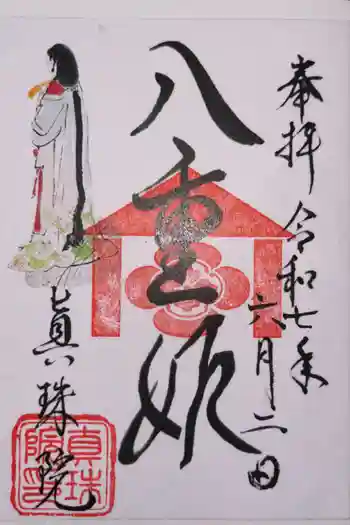 奉拝
令和七年
六月二日
八重姫
眞珠院
眞珠院印